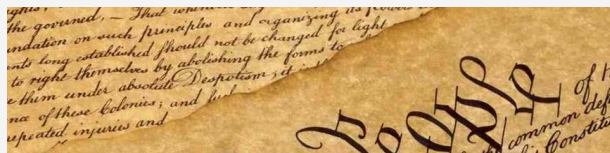 the governed, — That whenev
undation on such principles and organizing its powers
ents long established should not be changed for light
to right themselves by abolishing the forms to
e them under absolute Despotism, it is
nce of these Colonies; and
repeated injuries and
People
of t
common def
Constitu